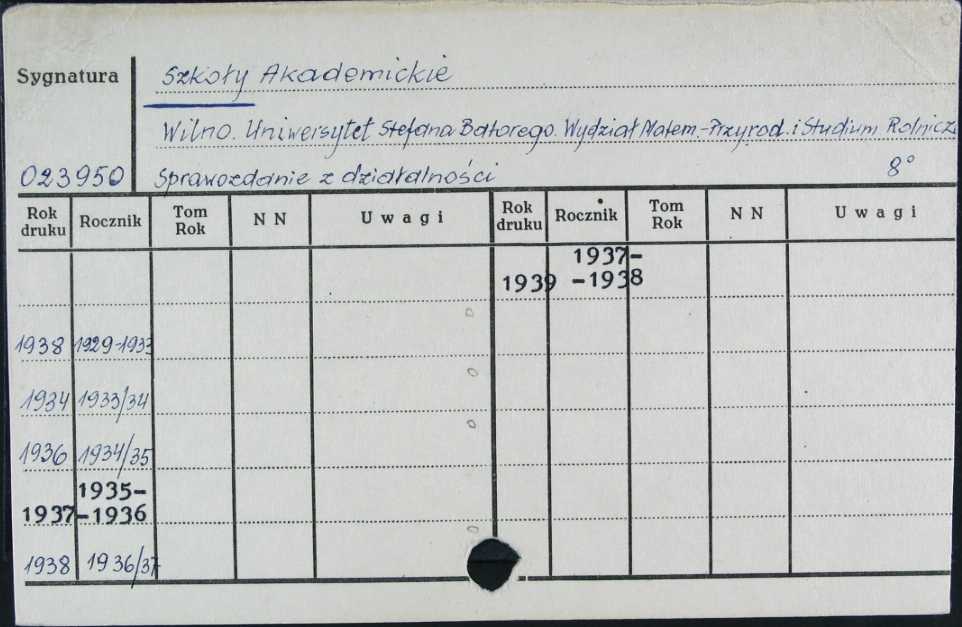 Sygnatura
Szkoły Akademickie
Wilno. Uniwersytet Stefana Batorego. Wydział Matem.-Przyrod. i Studium Rolnicz
023950 Sprawozdanie z działalności 8°
Rok druku Rocznik Tom Rok N N Uwagi Rok druku Rocznik Tom Rok N N Uwagi
1937-
1939 -1938
1938 1929-1933
1934 1933/34
1936 1934/35
1935-
1937 -1936
1938 1936/37